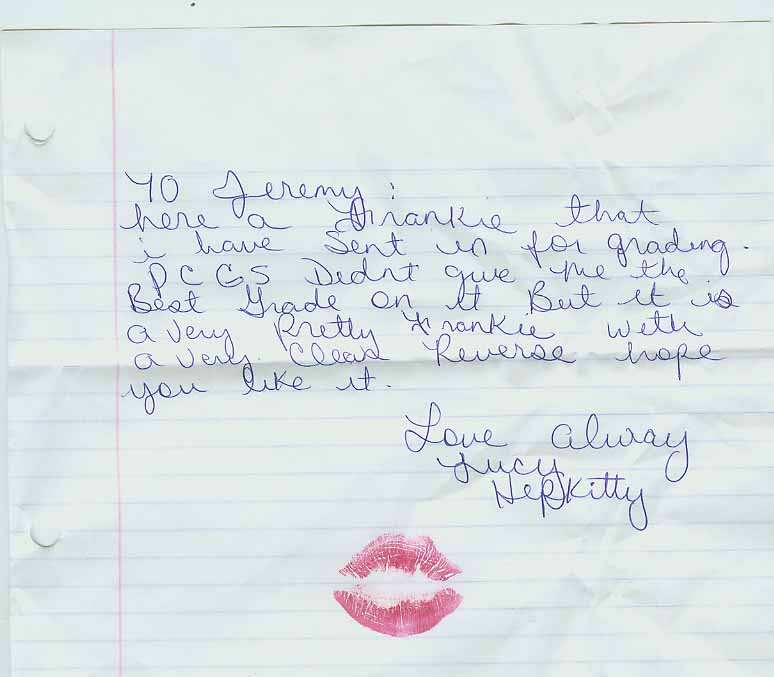 YO Jeremy:
here a Frankie that
i have Sent in for grading.
PCGS Didnt give me the
Best Grade on it But it is
a very Pretty Frankie with
a very Clear Reverse hope
you like it.
Love alway
Lucy
HepKitty